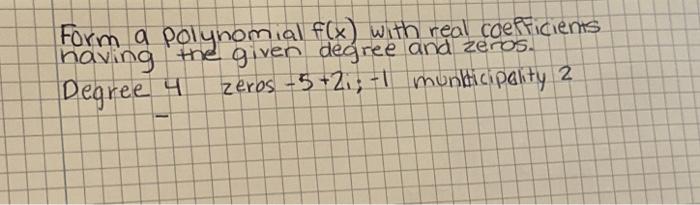 Form a polynomial f(x) with real coefficients
having the given degree and zeros.
Degree 4 zeros -5+2i; -1 munlticipality 2